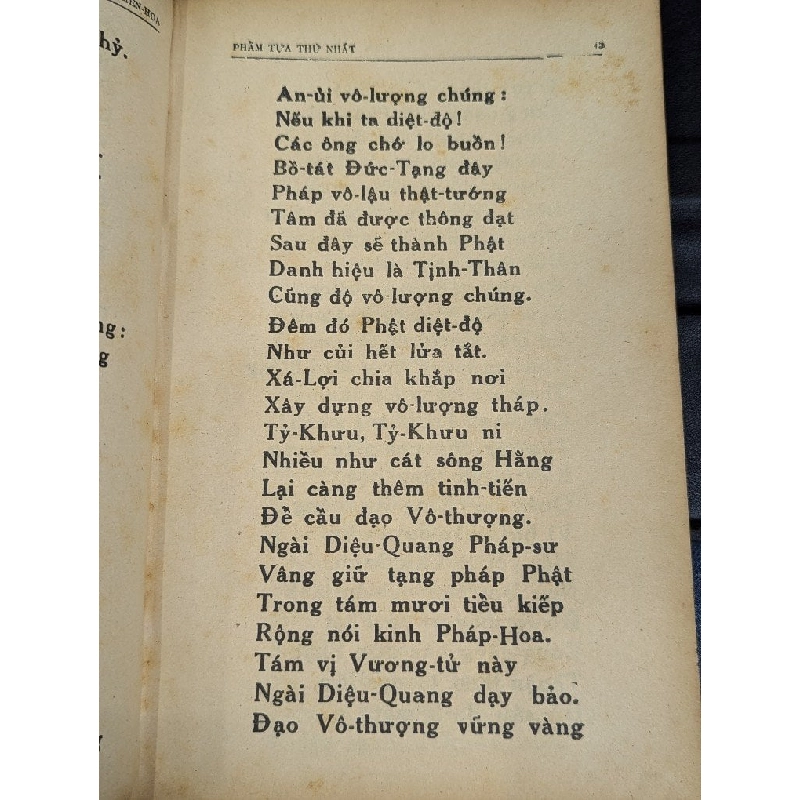 hỷ.
PHẨM TỰA THỨ NHẤT
An-ủi vô-lượng chúng:
Nếu khi ta diệt-độ!
Các ông chớ lo buồn!
Bồ-tát Đức-Tạng đây
Pháp vô-lậu thật-tướng
Tâm đã được thông đạt
Sau đây sẽ thành Phật
Danh hiệu là Tịnh-Thân
Cũng độ vô lượng chúng.
Đêm đó Phật diệt-độ
Như củi hết lửa tắt.
Xá-Lợi chia khắp nơi
Xây dựng vô-lượng tháp.
Tỷ-Khưu, Tỷ-Khưu ni
Nhiều như cát sông Hằng
Lại càng thêm tinh-tiến
Để cầu đạo Vô-thượng.
Ngài Diệu-Quang Pháp-sư
Vâng giữ tạng pháp Phật
Trong tám mươi tiểu kiếp
Rộng nói kinh Pháp-Hoa.
Tám vị Vương-tử này
Ngài Diệu-Quang dạy bảo.
Đạo Vô-thượng vững vàng